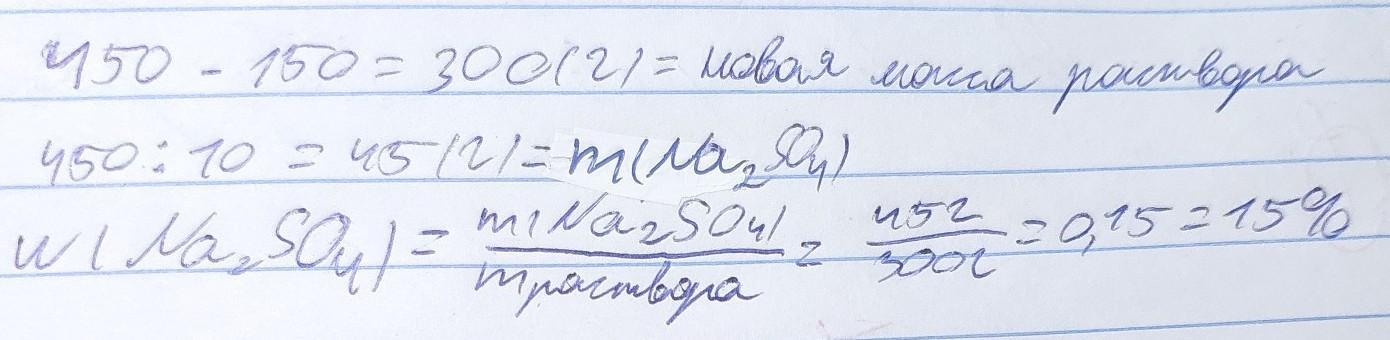 450 - 150 = 300 (г) = новая масса раствора
450 : 10 = 45 (г) = m(Na₂SO₄)
w(Na₂SO₄) = m(Na₂SO₄) / m раствора = 45г / 300г = 0,15 = 15%